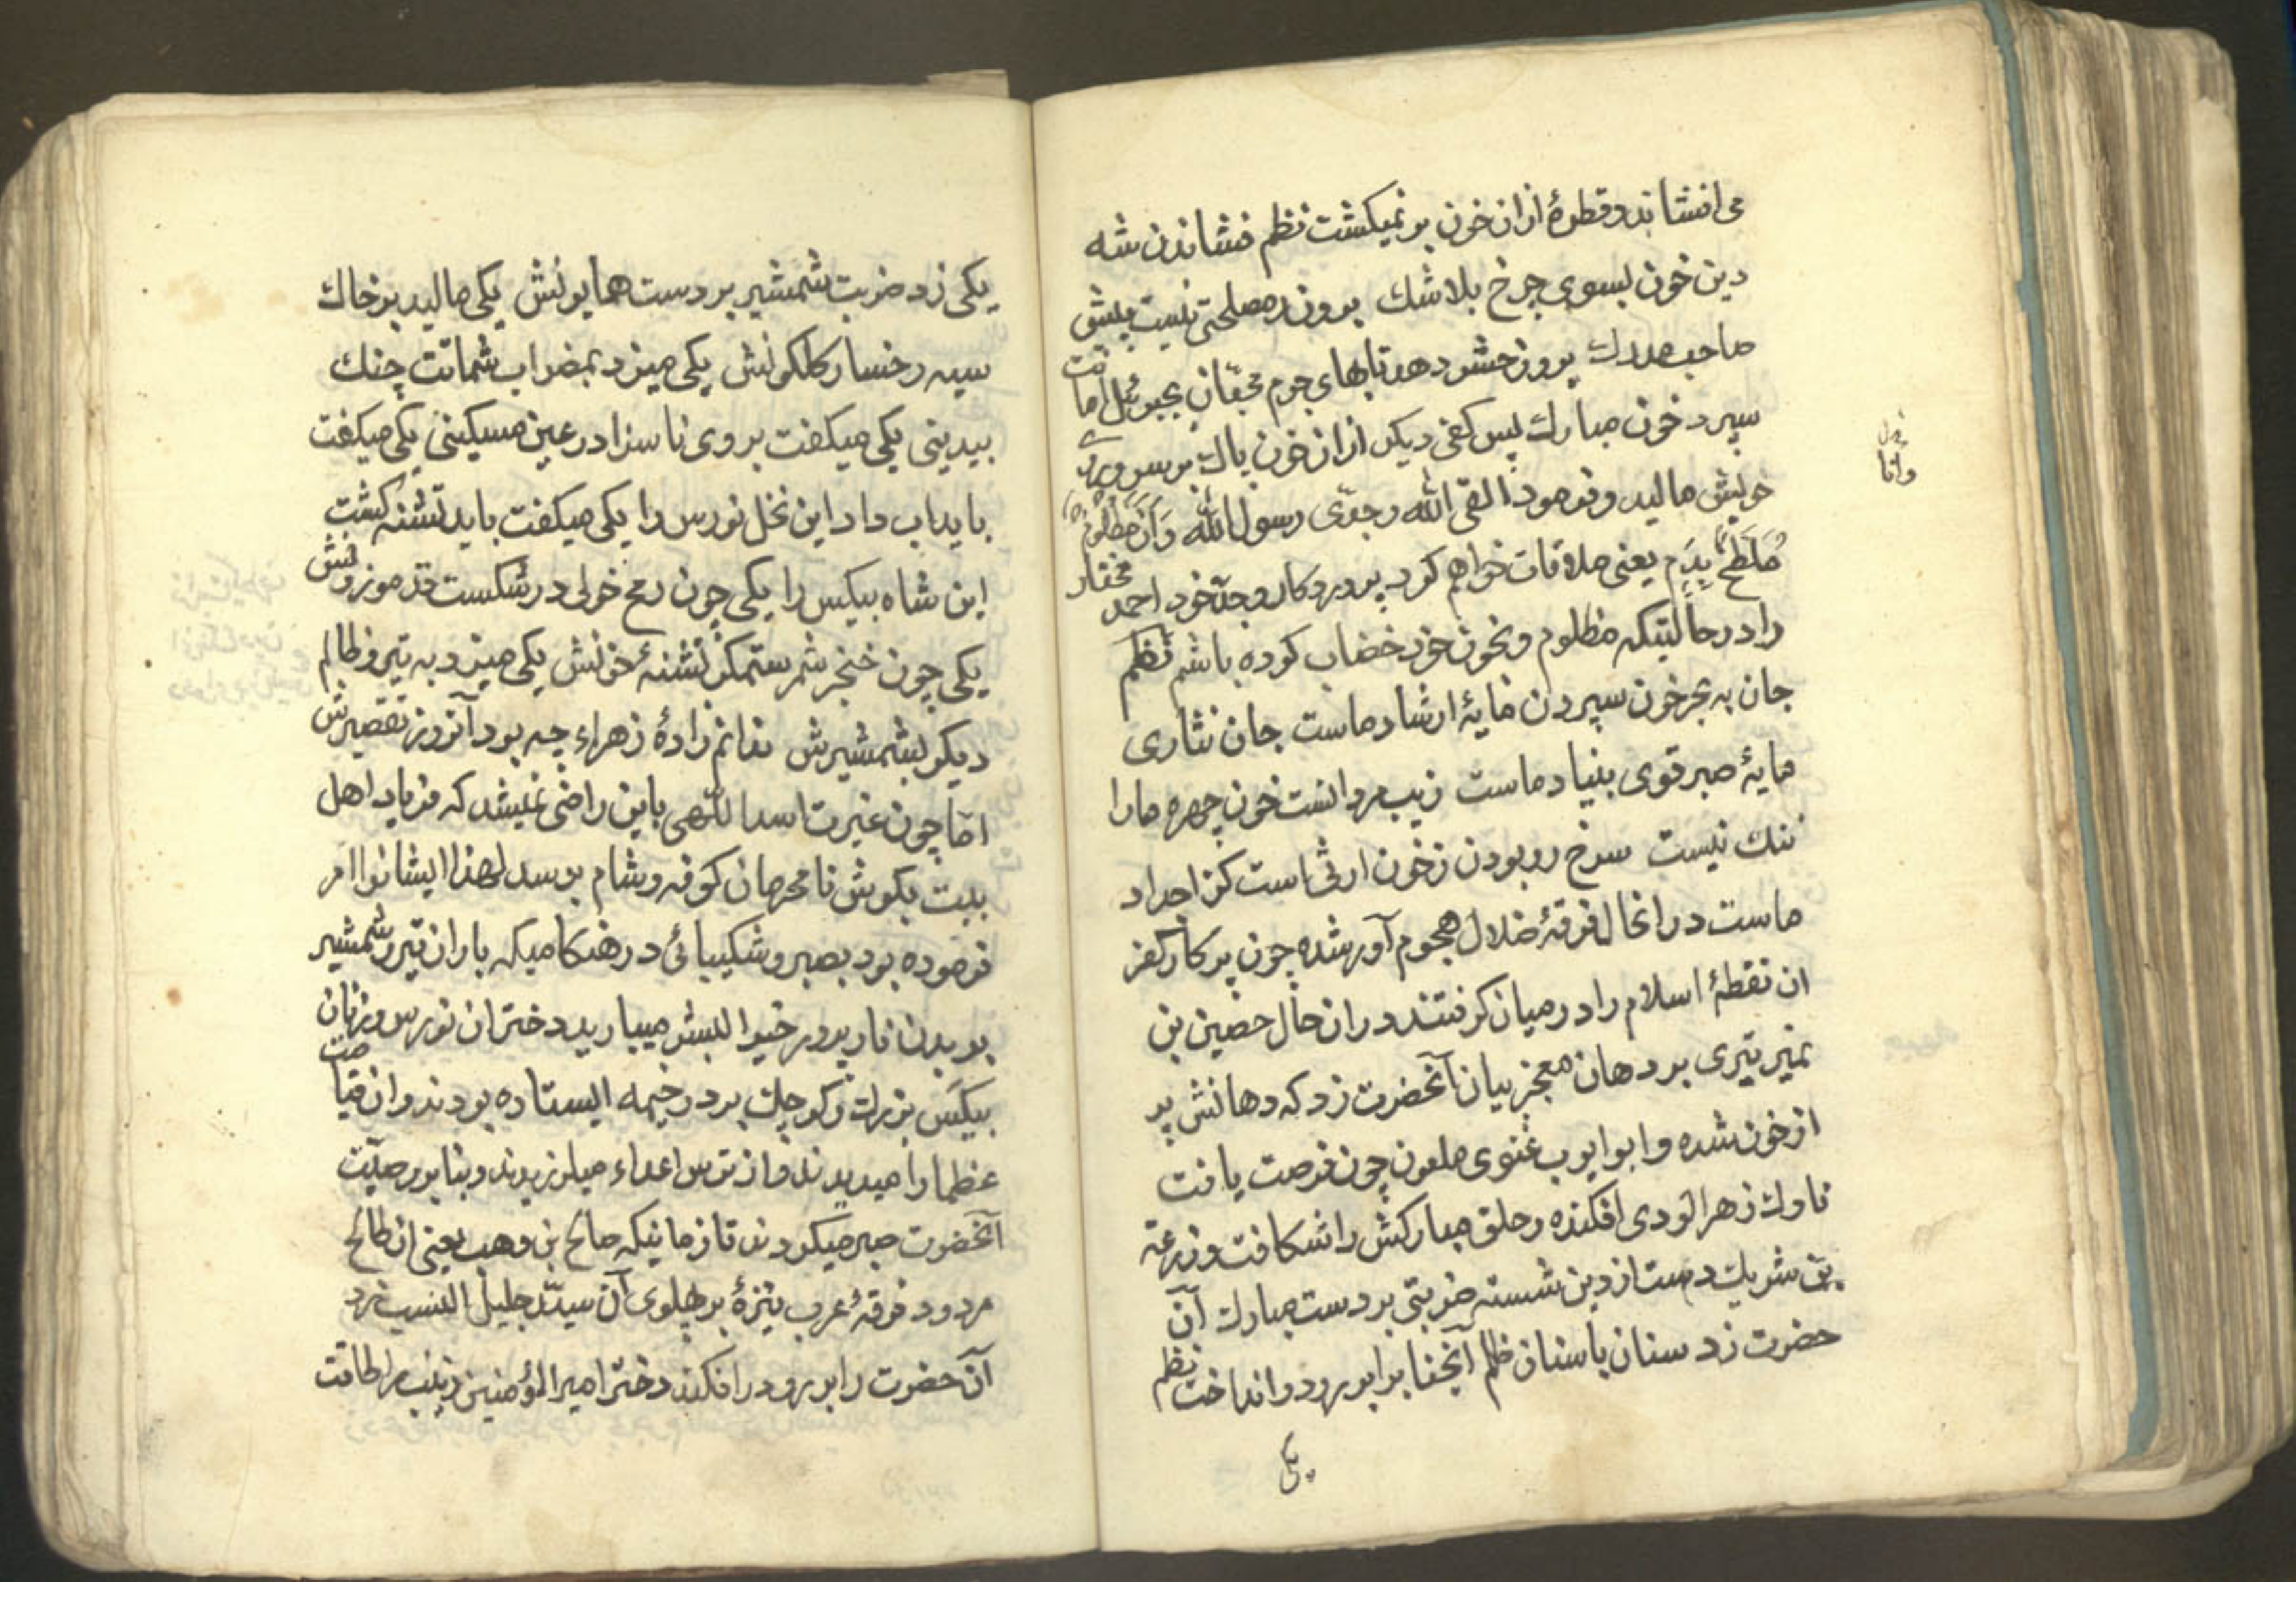 می‌افشاند و قطرهٔ ازان خون بر نمیکشت نظم فشاندن شه
دین خون بسوی چرخ بلاشك برون ز مصلحتی نیست پیش
صاحب مدرك بروز حشر دهد تا بهای جرم محبّان بجبرئیل امانت
سپرد خون مبارك پس کفی دیکر ازان خون پاك بر سر و روی
خویش مالید و فرمود القی الله و جدّی رسول الله وَ اَنَا مَظلُومٌ
مُلَطَّخٌ بِدَم یعنی ملاقات خواهم کرد پروردکار و جدّ خود احمد مختار
را در حالتیکه مظلوم و بخون خود خضاب کرده باشم نظم
جان به بحر خون سپردن مایهٔ ارشاد ماست جان نثاری
مایهٔ صبر قوی بنیاد ماست زیب مردانست خون چهره ما را
ننك نیست سرخ رو بودن ز خون ارثی است کز اجداد
ماست در انحال فرقهٔ ضلال هجوم آور شده چون پرکار کفر
ان نقطهٔ اسلام را در میان کرفتند در ان حال حصین بن
نمیر تیری بر دهان معجز بیان آنحضرت زد که دهانش پر
از خون شده و ابو ایوب غنوی ملعون چون فرصت یافت
ناوك زهر الودی افکنده و حلق مبارکش را شکافت و زرعة
بن شریك دست از دین شسته ضربتی بر دست مبارك آن
حضرت زد سنان باسنان ظلم آنجناب را بر رو در انداخت نظم
یکی
یکی زد ضربت شمشیر بر دست همایونش یکی مالید بر خاك
سیه رخسار کلکونش یکی میزد بمضراب شماتت چنك
بیدینی یکی میکفت بر وی ناسزا در عین مسکینی یکی میکفت
باید اب داد این نخل نورس را یکی میکفت باید تشنه کشت
این شاه بیکس را یکی چون رمح خولی در شکست قد موزونش
یکی چون خنجر شمر ستمکر تشنهٔ خونش یکی میزد به تیر و ظالم
دیکر بشمشیرش ندانم زادهٔ زهراء چه بود آنروز تقصیرش
امّا چون غیرت اسد اللّهی باین راضی نمیشد که فریاد اهل
بیت بکوش نامحرمان کوفه و شام برسد لهذا ایشانرا امر
فرموده بود بصبر و شکیبائی در هنکامیکه باران تیر و شمشیر
بر بدن نازپرور خیر البشر میبارید دختران نورس و زنان
بیکس بزرك و کوچك بر در خیمه ایستاده بودند و ان قیامت
عظما را میدیدند و از ترس اعداء میلرزیدند و بنا بر وصیّت
آنحضرت صبر میکردند تا زمانیکه صالح بن وهب یعنی ان طالح
مردود فرقهٔ عرب نیزهٔ بر پهلوی آن سیّد جلیل النسب زد
آن حضرت را بر رو در افکند دختر امیر المؤمنین زینب را طاقت